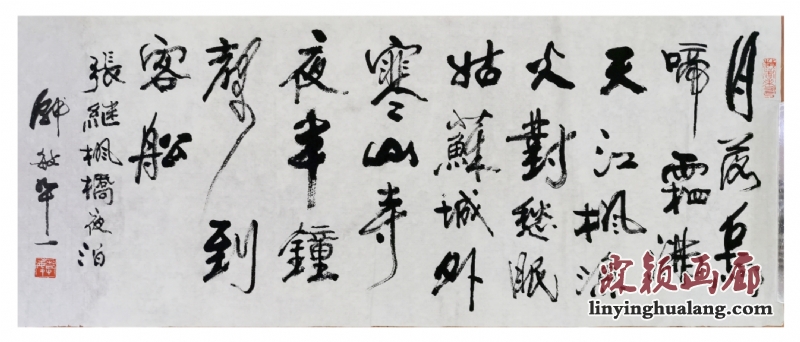 月落烏
啼霜滿
天江楓漁
火對愁眠
姑蘇城外
寒山寺
夜半鐘
聲到
客船
張継楓橋夜泊
霖颖画廊
linyinghualang.com